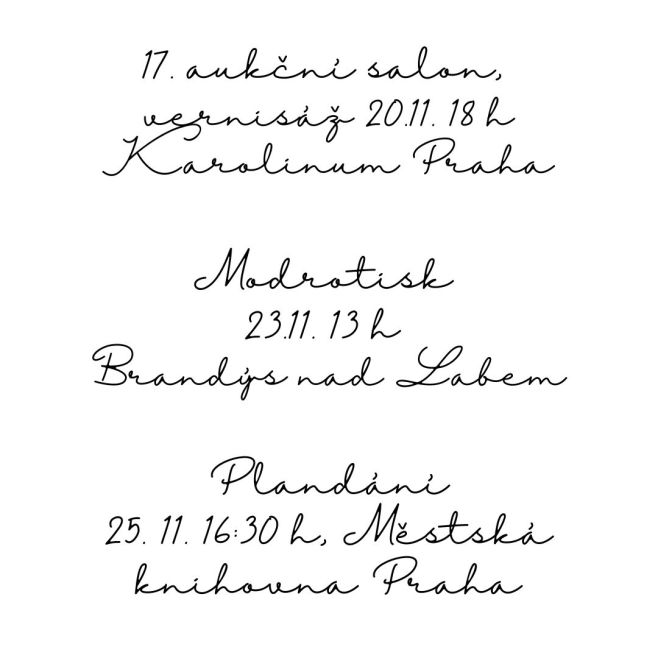 17. aukční salon,
vernisáž 20.11. 18 h
Karolinum Praha
Modrotisk
23.11. 13 h
Brandýs nad Labem
Plandání
25. 11. 16:30 h, Městská
knihovna Praha